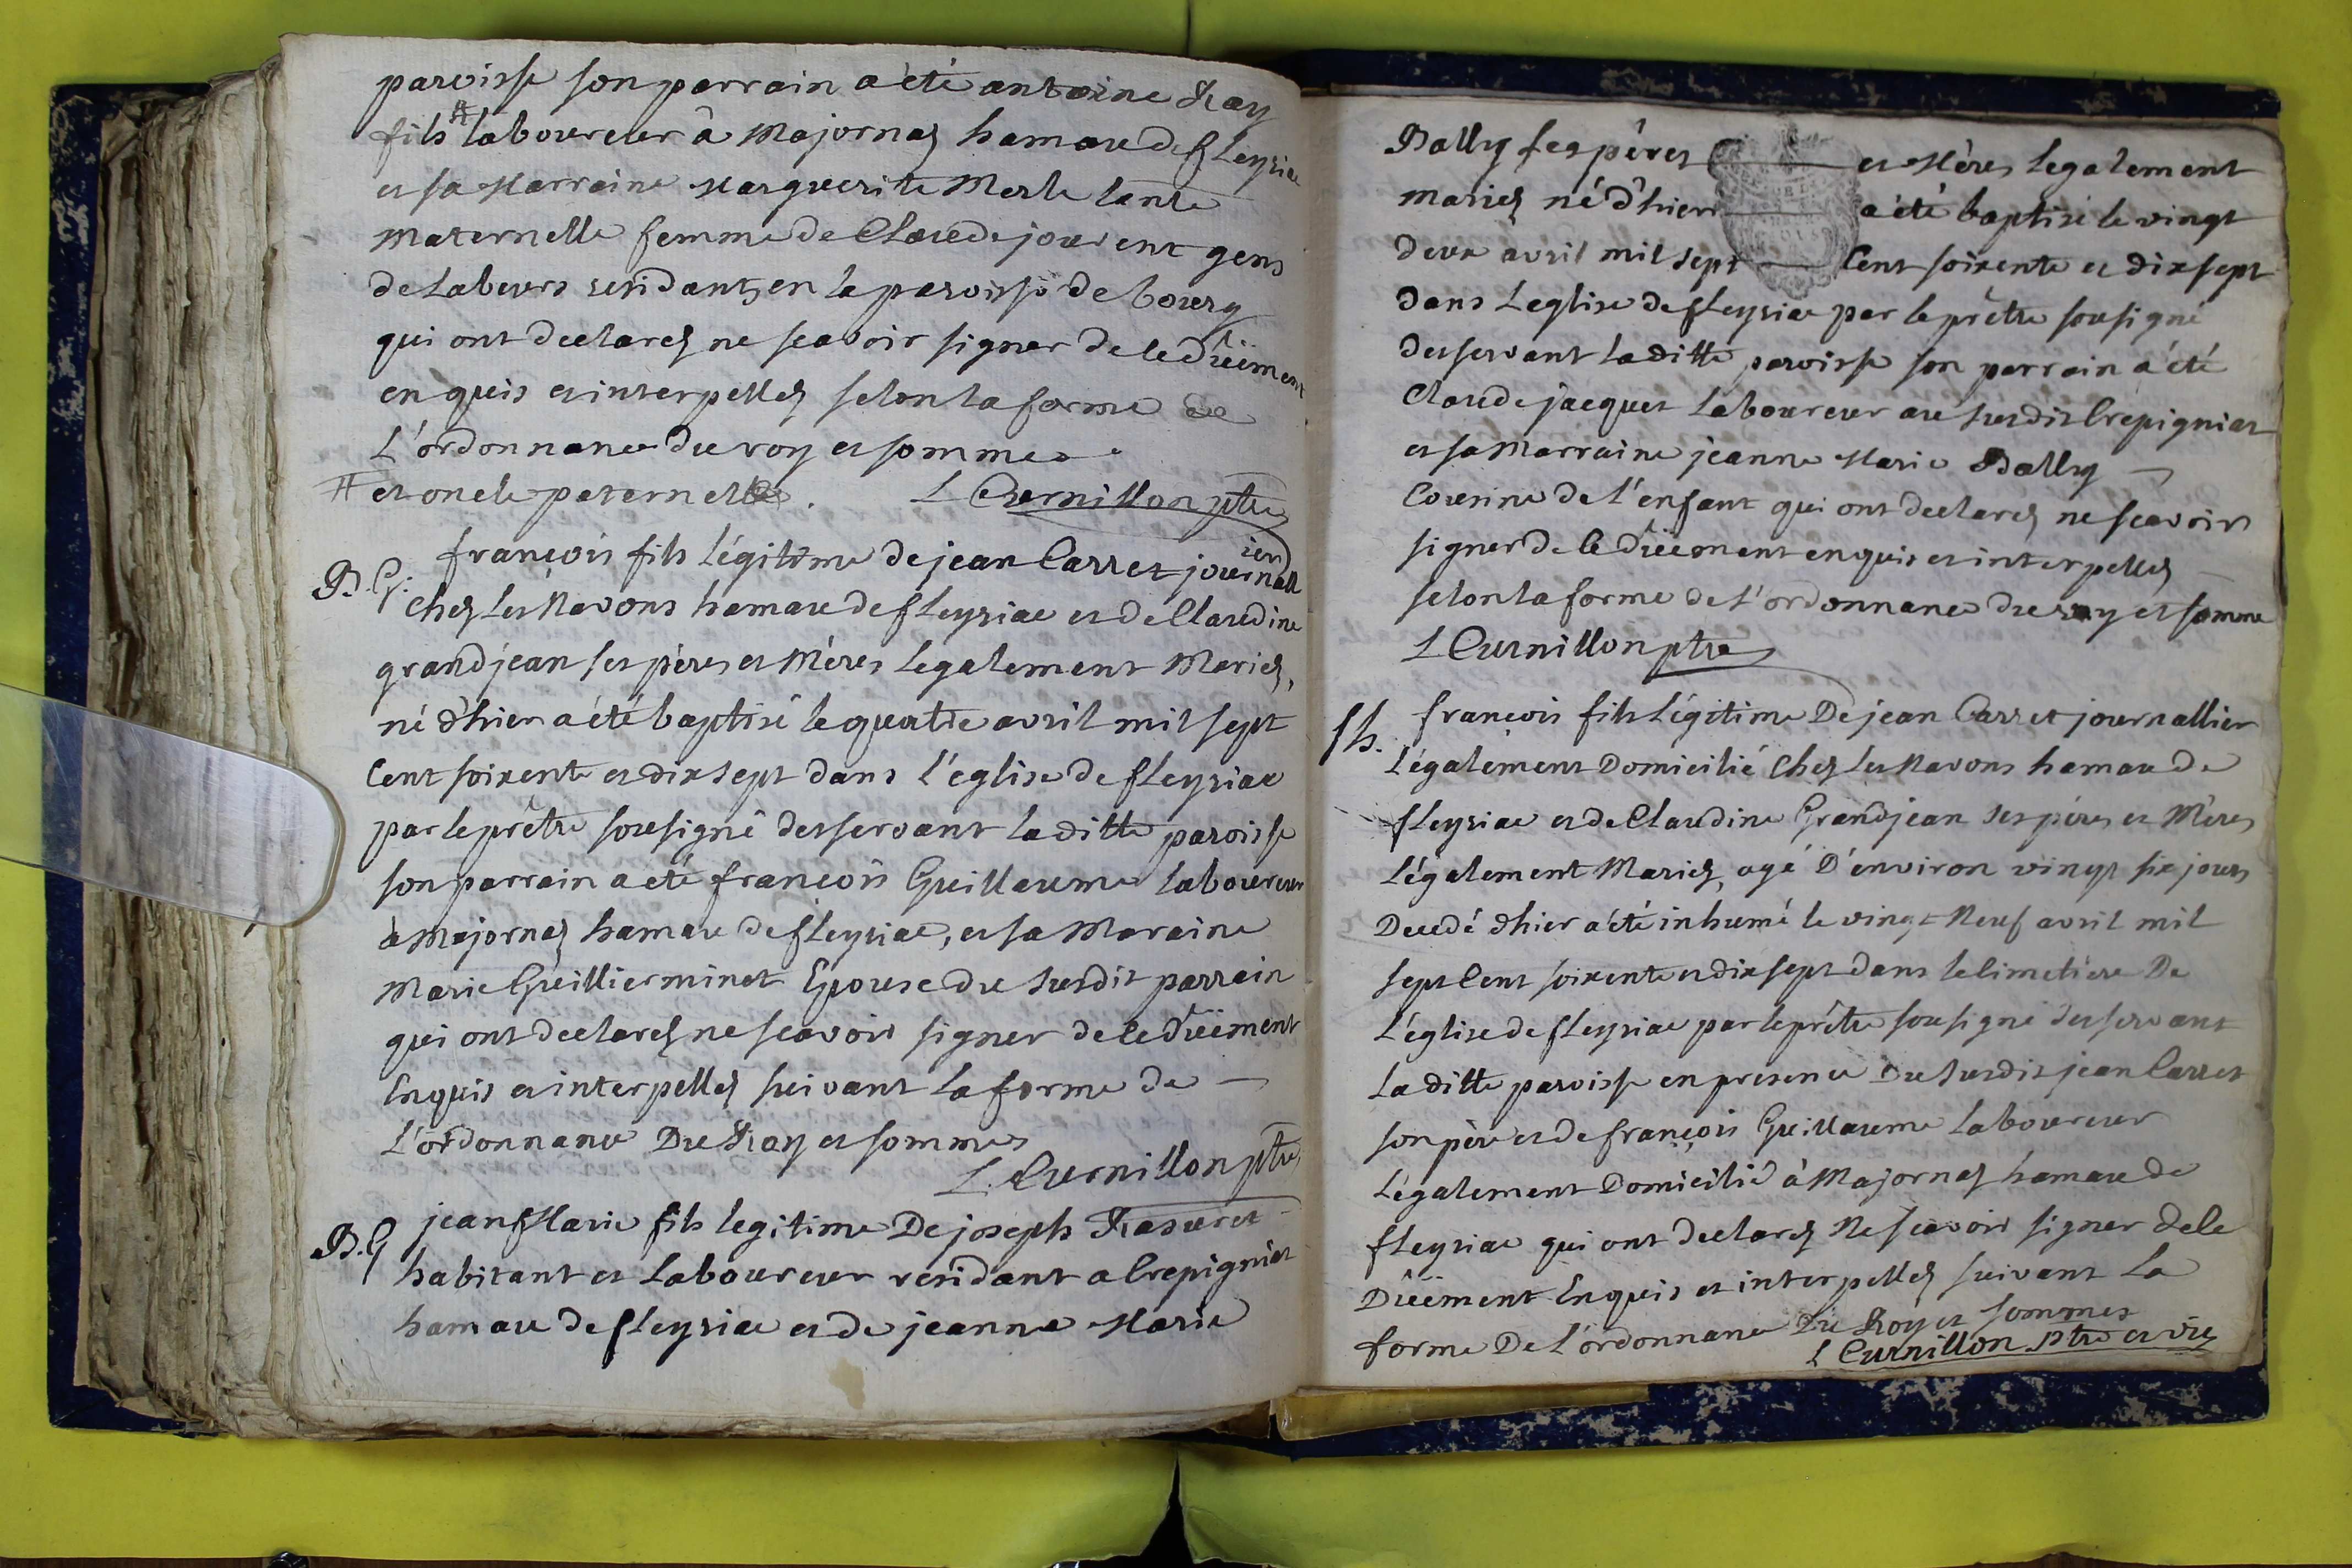 paroisse son parrain a été antoine Ray
fils # laboureur à Majornas hamau de fleyriac
et sa Marraine Marguerite Merle tante
Maternelle femme de Claude jouvent gens
de Labeurs residants en la paroisse de bourg
qui ont declarez ne scavoir signer de ce duëment
enquis et interpellez selon la forme de
L'ordonnance du roy et sommes
# et oncle paternelle. L Curnillon ptre
B. G. françois fils légitime de jean Carret journallier
chez Les Navons hamau de fleyriac et de Claudine
grandjean ses pères et Mères legalement Mariez,
né d'hier a été baptisé le quatre avril mil sept
Cent soixente et dix sept dans l'église de fleyriac
par le prêtre sousigné desservant la ditte paroisse
son parrain a été françois Guillaume laboureur
à Majornas hamau de fleyriac, et sa Maraine
Marie Guillierminet Epouse du susdit parrain
qui ont declarez ne scavoir signer de ce duëment
Enquis et interpellez suivant la forme de
L'ordonnance Du Roy et sommes
L. Curnillon ptre
B. G jean Marie fils legitime De joseph Rasuret
habitant et Laboureur residant a Crepigniat
hamau de fleyriac et de jeanne Marie
Bally ses pères et Mères legalement
mariez né d'hier a été baptisé le vingt
deux avril mil sept Cent soixente et dix sept
dans Leglise de fleyriac par le prêtre sousigné
desservant la ditte paroisse son parrain a été
Claude jacquet Laboureur au susdit Crepigniat
et sa Marraine jeanne Marie Bally
Cousine de l'enfant qui ont declarez ne scavoirs
signer de ce duëment enquis et interpellez
selon la forme de l'ordonnance du roy et somme
L Curnillon ptre
sh. françois fils Légitime De jean Carret journallier
Légalement Domicilié Chez Les Navons hamau de
fleyriac et de Claudine Grandjean ses pères et Mères
Légalement Mariez, agé D'environ vingt six jours
Decedé d'hier a été inhumé le vingt Neuf avril mil
sept Cent soixente et dix sept dans le Cimetière De
L'église de fleyriac par le prêtre sousigné desservant
La ditte paroisse en presence Du susdit jean Carret
son père et de françois Guillaume Laboureur
Légalement Domicilié à Majornas hamau de
fleyriac qui ont declarez Ne scavoir signer de ce
Duëment Enquis et interpellez suivant La
forme De L'ordonnance Du Roy et sommes
L Curnillon ptre et vic